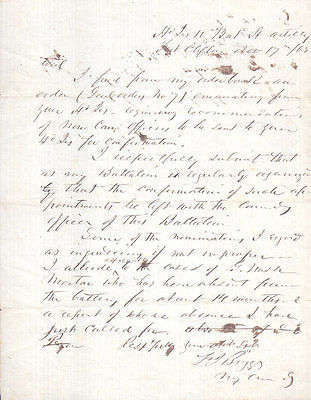 Hd Qrs 11 Bat H artilly
Clifton Nov 17th /63
Col
I find from my order book an
order (Genl order No 7) emanating from
your Hd Qrs requiring recommendations
of Non Com officers to be sent to your
Hd Qrs for confirmation.
I respectfully submit that
as my Battalion is regularly organized
that the confirmation of such ap
pointments be left with the Comndg
officer of this Battalion
Some of the nominations I regard
as injudicious if not improper
I allude especially to the cases of
who has been absent from
the battery for about 14 months. &
a report of whose absence I have
just called for
Respectfully your obdt Svt